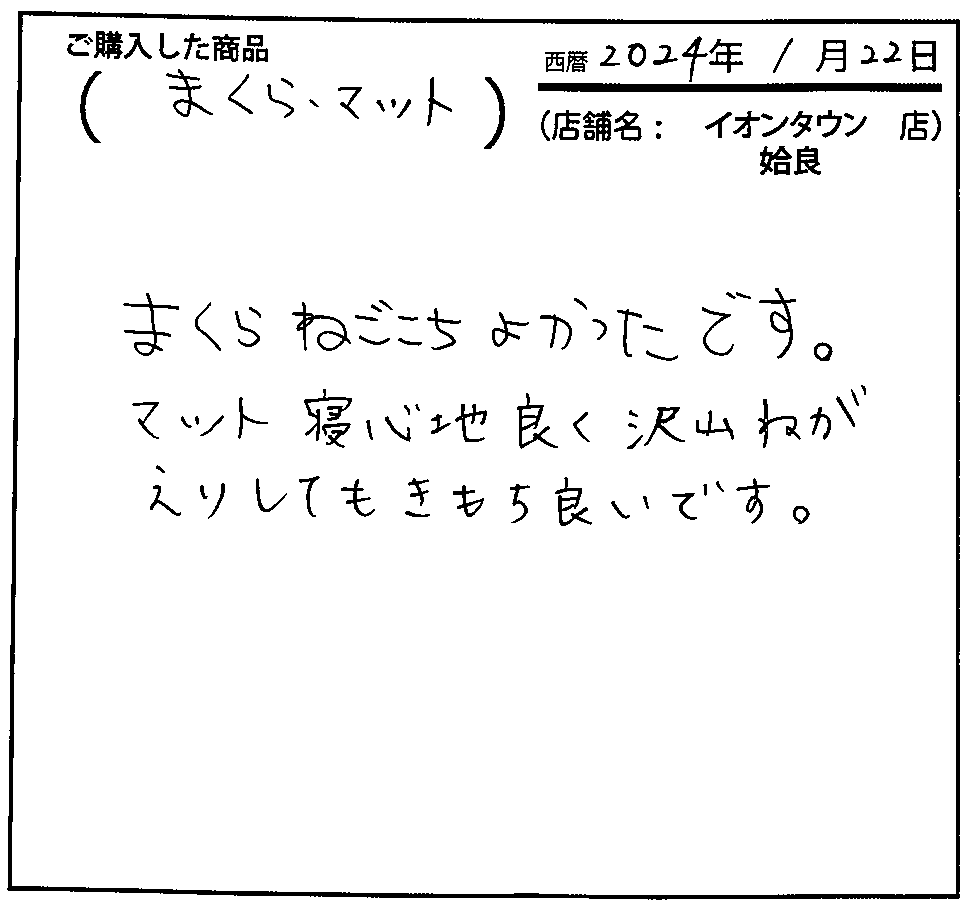 ご購入した商品
(まくら、マット)
西暦 2024年 1月22日
(店舗名： イオンタウン 店)
姶良
まくら ねごこち よかったです。
マット 寝心地 良く 沢山 ねが
えりしても きもち 良いです。